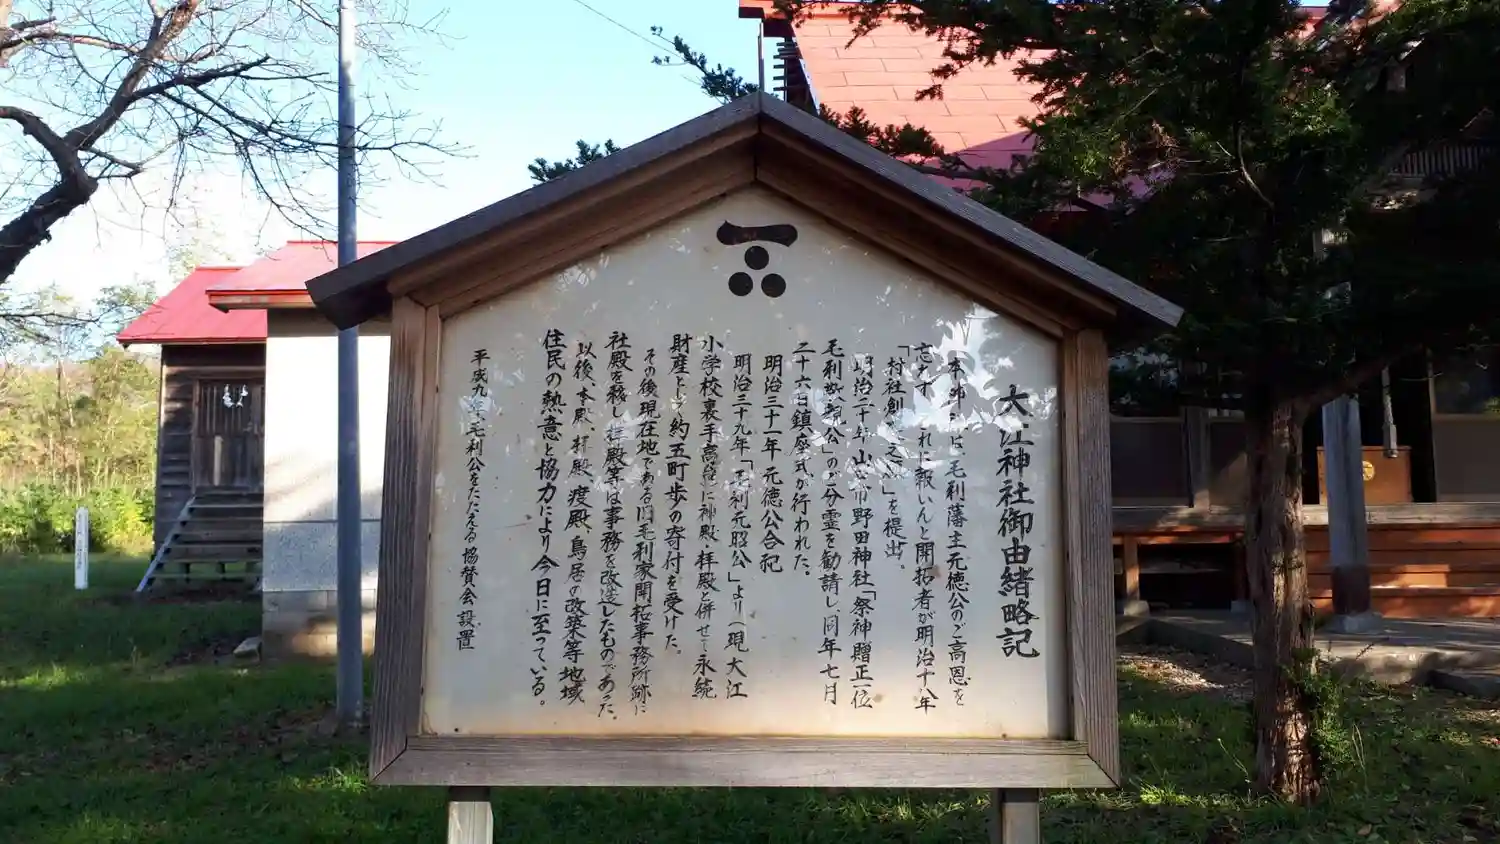 大江神社御由緒略記
本神社は、毛利藩主元徳公のご高恩を
忘れず これに報いんと開拓者が明治十八年
「村社創立之願」を提出。
明治二十年 山口市野田神社「祭神贈正一位
毛利敬親公」のご分霊を勧請し、同年七月
二十六日鎮座式が行われた。
明治三十一年 元徳公合祀
明治三十九年「毛利元昭公」より(現大江
小学校裏手高台に神殿、拝殿と併せて永続
財産として約五町歩の寄付を受けた。
その後現在地である旧毛利家開拓事務所跡に
社殿を移し拝殿等は事務を改造したものであった。
以後、本殿、拝殿、渡殿、鳥居の改築等地域
住民の熱意と協力により今日に至っている。
平成九年 毛利公をたたえる協賛会設置